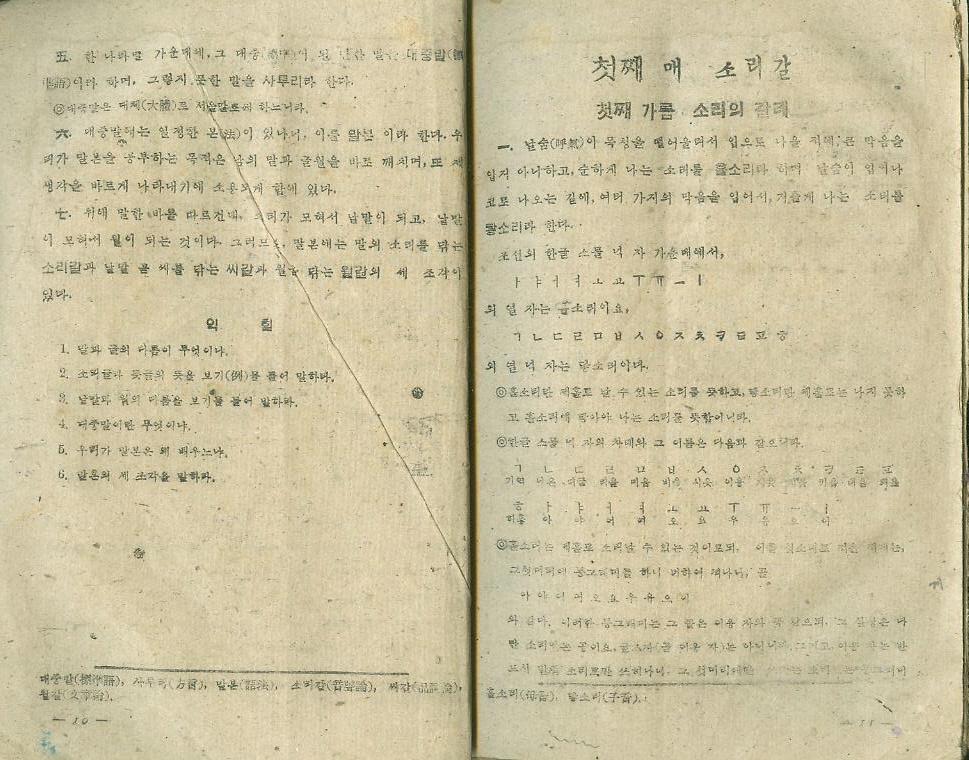 五. 한 나라말 가운대에, 그 대중(標準)이 된 말은 대중말(標
準語)이라 하며, 그렇지 못한 말을 사투리라 한다.
◎대중말은 대체(大體)로 서울말로써 하느니라.
六. 대중말에는 일정한 본(法)이 있나니, 이를 말본 이라 한다. 우
리가 말본을 공부하는 목적은 남의 말과 글월을 바로 깨치며, 또 제
생각을 바르게 나타내기에 소용되게 함에 있다.
七. 위에 말한 바를 따르건대, 소리가 모혀서 낱말이 되고, 낱말
이 모혀서 월이 되는 것이다. 그러므로, 말본에는 말의 소리를 닦는
소리갈과 낱말 곧 씨를 닦는 씨갈과 월을 닦는 월갈의 세 조각이
있다.
익 힘
1. 말과 글의 다름이 무엇이냐.
2. 소리글과 뜻글의 뜻을 보기(例)를 들어 말하라.
3. 낱말과 월의 다름을 보기를 들어 말하라.
4. 대중말이란 무엇이냐.
5. 우리가 말본은 왜 배우느냐.
6. 말본의 세 조각을 말하라.
대중말(標準語), 사투리(方言), 말본(語法), 소리갈(音聲論), 씨갈(品詞論),
월갈(文章論).
— 10 —
첫째 매 소리갈
첫째 가름 소리의 갈래
一. 날숨(呼氣)이 목청을 떨어울려서 입으로 나올 적에, 큰 막음을
입지 아니하고, 순하게 나는 소리를 홀소리라 하며, 날숨이 입이나
코로 나오는 길에, 여러 가지의 막음을 입어서, 거츨게 나는 소리를
닿소리라 한다.
조선의 한글 스물 넉 자 가운대에서,
ㅏ ㅑ ㅓ ㅕ ㅗ ㅛ ㅜ ㅠ ㅡ ㅣ
의 열 자는 홀소리이요,
ㄱ ㄴ ㄷ ㄹ ㅁ ㅂ ㅅ ㅇ ㅈ ㅊ ㅋ ㅌ ㅍ ㅎ
의 열 넉 자는 닿소리이다.
◎홀소리란 제홀로 날 수 있는 소리를 뜻하고, 닿소리란 제홀로는 나지 못하
고 홀소리에 닿아야 나는 소리를 뜻함이니라.
◎한글 스물 넉 자의 차례와 그 이름은 다음과 같으니라.
ㄱ ㄴ ㄷ ㄹ ㅁ ㅂ ㅅ ㅇ ㅈ ㅊ ㅋ ㅌ ㅍ
기역 니은 디귿 리을 미음 비읍 시옷 이응 지읒 치읓 키읔 티읕 피읖
ㅎ ㅏ ㅑ ㅓ ㅕ ㅗ ㅛ ㅜ ㅠ ㅡ ㅣ
히읗 아 야 어 여 오 요 우 유 으 이
◎홀소리는 제홀로 소리날 수 있는 것이로되, 이를 첫소리로 적을 때에는,
그 첫머리에 동그래미를 하나 더하여 적나니, 곧
아 야 어 여 오 요 우 유 으 이
와 같다. 이러한 동그래미는 그 꼴은 이응 자와 똑 같으되, 그 실상은 다
만 소리없는 공이요, 글자(곧 이응 자)는 아니니라. 그리고, 이응 자는 반
드시 받침 소리로만 쓰히나니, 그 첫머리에
홀소리(母音), 닿소리(子音).
— 11 —